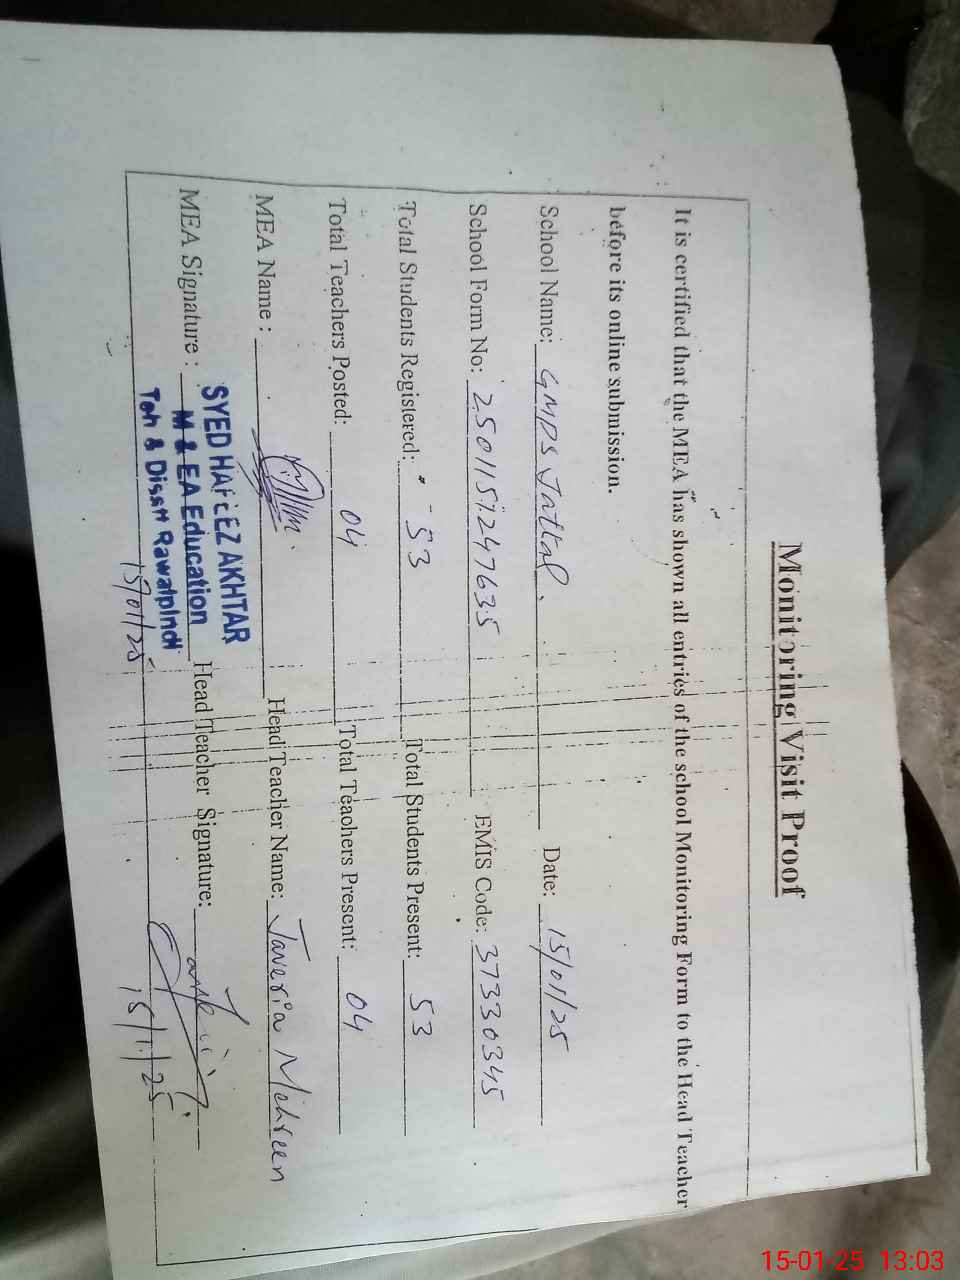 Monitoring Visit Proof
It is certified that the MEA has shown all entries of the school Monitoring Form to the Head Teacher
before its online submission.
School Name: GMPS Jatkal. Date: 15/01/25
School Form No: 2501157247635 EMIS Code: 37330345
Total Students Registered: 53 Total Students Present: 53
Total Teachers Posted: 04 Total Teachers Present: 04
MEA Name: Head Teacher Name: Javeria Mehreen
SYED HAFEEZ AKHTAR
MEA Signature: M & EA Education Head Teacher Signature:
Teh & Disstt Rawalpindi
15/01/25 15/1/25
15-01-25 13:03